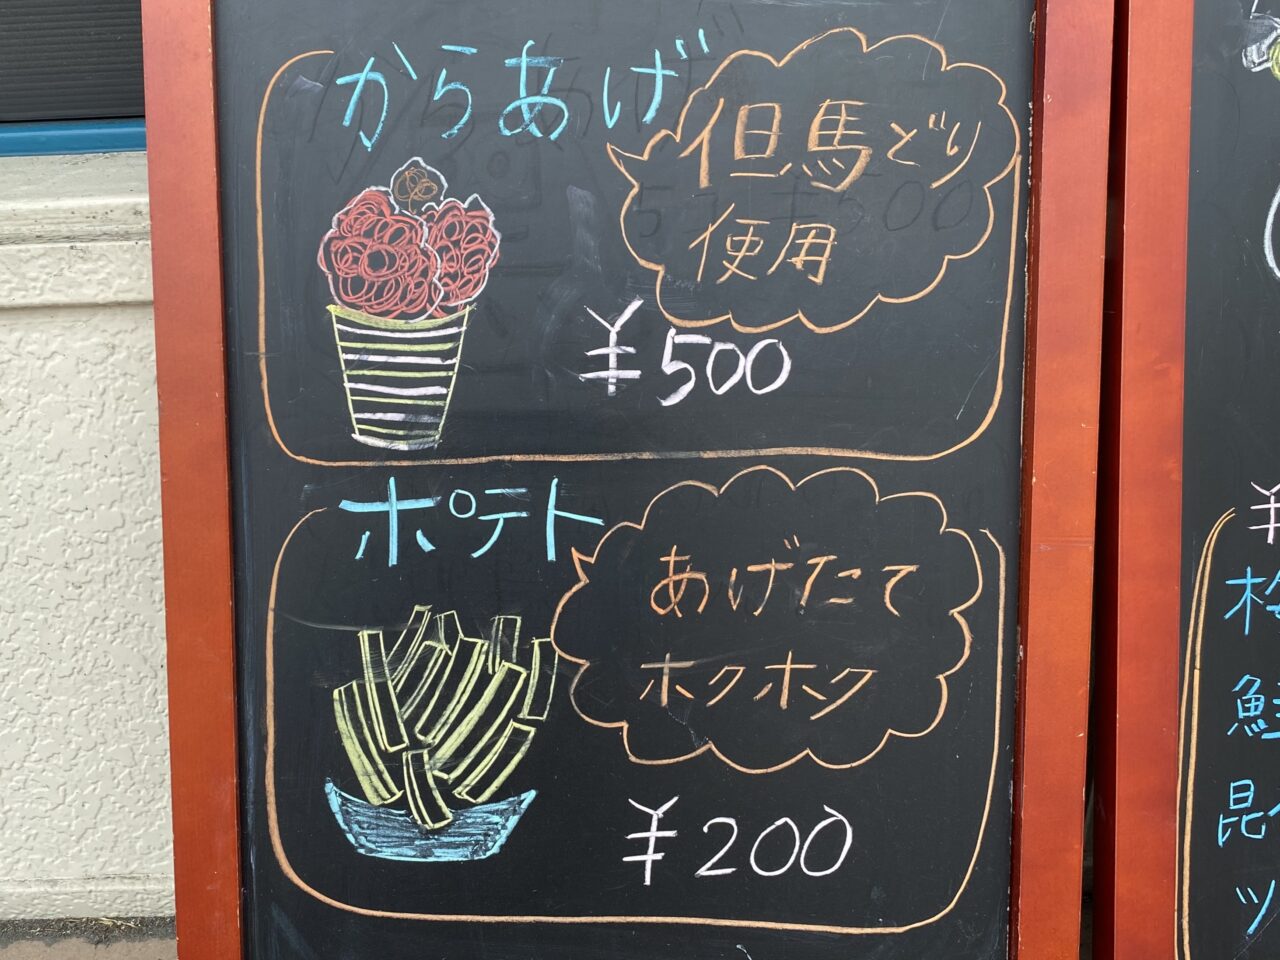 からあげ
但馬どり
使用
¥500
ポテト
あげたて
ホクホク
¥200
¥
鮭
昆
ツ